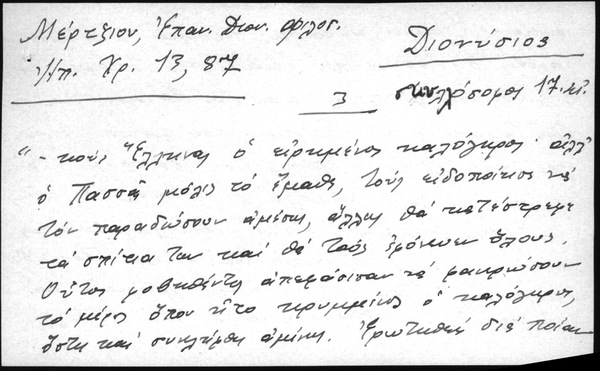 Μέρτζιον, Ἐπαν. Διον. Φιλοσ.
Ἠπ. Χρ. 13, 87
Διονύσιος
3
σκυλόσοφος 17 αἰ.
"- τούς Ἕλληνας ὁ εἰρημένος καλόγηρος ἀλλ'
ὁ Πασσᾶς μόλις τό ἔμαθε, τούς εἰδοποίησε νά
τόν παραδώσουν ἀμέσως, ἄλλως θά κατέστρεφε
τά σπίτια των καί θά τούς ἐφόνευεν ὅλους.
Οὗτοι φοβηθέντες ἀπεφάσισαν νά φανερώσουν
τό μέρος ὅπου ἦτο κρυμμένος ὁ καλόγηρος,
ὥστε καί συνελήφθη ἀμέσως. Ἐρωτηθείς διά ποίαν